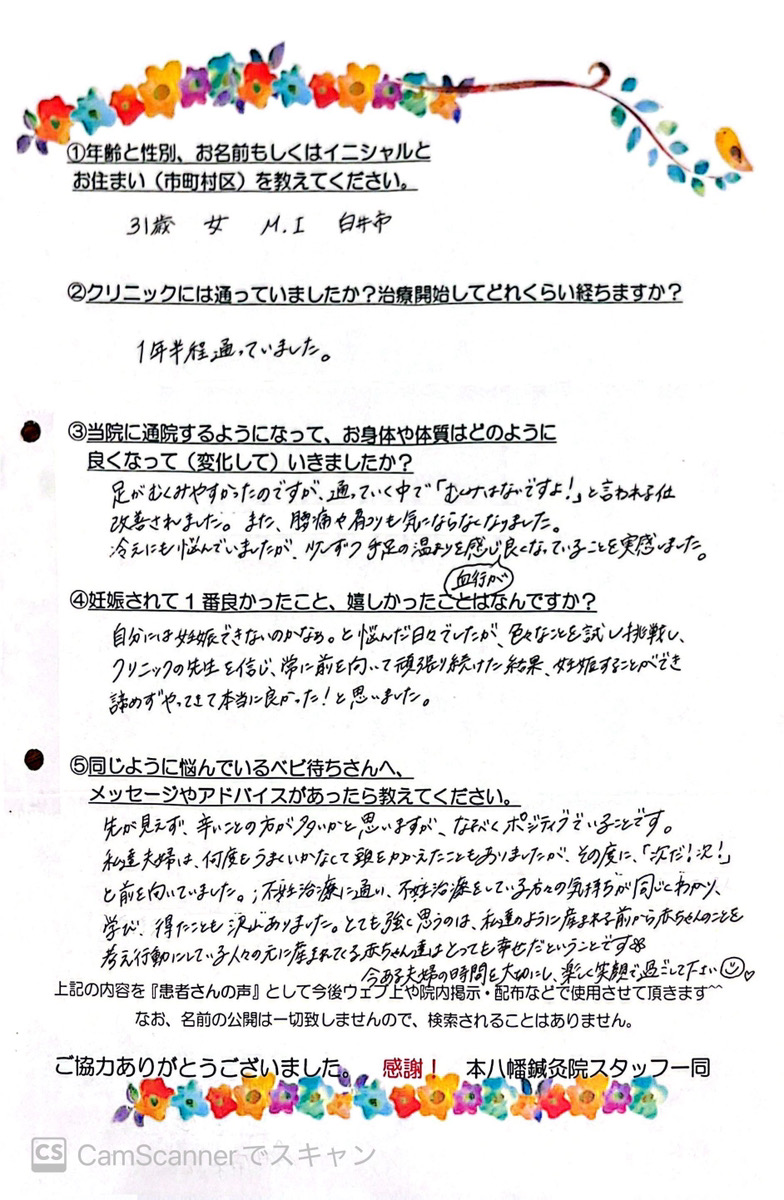 ①年齢と性別、お名前もしくはイニシャルと
お住まい（市町村区）を教えてください。
31歳 女 M.I 白井市
②クリニックには通っていましたか？治療開始してどれくらい経ちますか？
1年半程通っていました。
③当院に通院するようになって、お身体や体質はどのように
良くなって（変化して）いきましたか？
足がむくみやすかったのですが、通っていく中で「むくみはないですよ！」と言われる位
改善されました。また、腰痛や肩コリも気にならなくなりました。
冷えにも悩んでいましたが、少しずつ手足の温まりを感じ良くなっていることを実感しました。
血行が
④妊娠されて１番良かったこと、嬉しかったことはなんですか？
自分には妊娠できないのかなぁ。と悩んだ日々でしたが、色々なことを試し挑戦し、
クリニックの先生を信じ、常に前を向いて頑張り続けた結果、妊娠することができ
諦めずやってきて本当に良かった！と思いました。
⑤同じように悩んでいるベビ待ちさんへ、
メッセージやアドバイスがあったら教えてください。
先が見えず、辛いことの方が多いかと思いますが、なるべくポジティブでいることです。
私達夫婦は、何度もうまくいかなくて頭をかかえたこともありましたが、その度に、「次だ！次！」
と前を向いていました。不妊治療に通い、不妊治療をしている方々の気持ちが同じくわかり、
学び、得たことも沢山ありました。とても強く思うのは、私達のように産まれる前から赤ちゃんのことを
考え行動にしている人々の元に産まれてくる赤ちゃん達はとっても幸せだということです
今ある夫婦の時間を大切にし、楽しく笑顔で過ごして下さい
上記の内容を『患者さんの声』として今後ウェブ上や院内掲示・配布などで使用させて頂きます^^
なお、名前の公開は一切致しませんので、検索されることはありません。
ご協力ありがとうございました。 感謝！ 本八幡鍼灸院スタッフ一同
CS CamScanner でスキャン